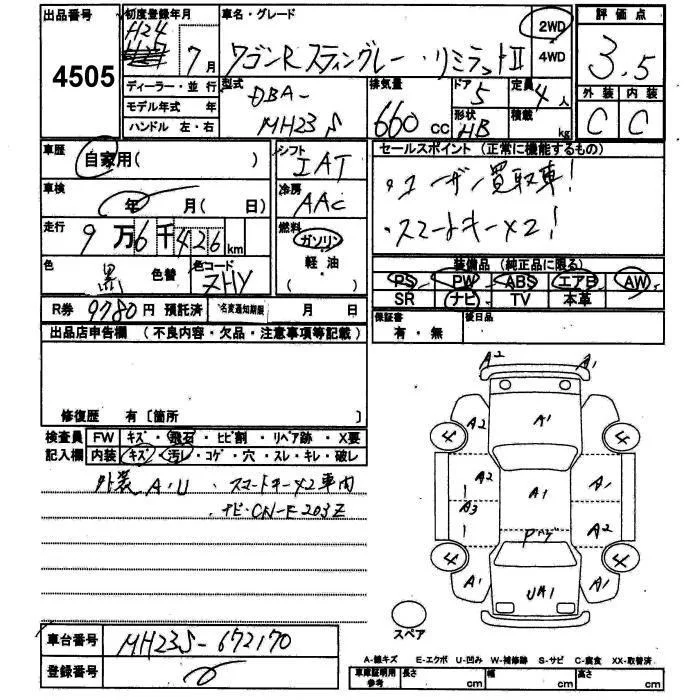 出品番号
4505
初度登録年月
H24
7月
ディーラー・並行
モデル年式 年
ハンドル 左・右
車名・グレード
ワゴンR スティングレー・リミテッドII
2WD
4WD
型式
DBA-
MH23S
排気量
660 cc
ドア
5
形状
HB
定員
4人
積載
kg
評価点
3.5
外装 内装
C C
車歴
自家用( )
車検
年 月( 日)
走行
9万6千426km
色
黒 色替
色コード
ZHY
シフト
IAT
冷房
AAC
燃料
ガソリン
軽・油
( )
セールスポイント(正常に機能するもの)
・ユーザー買取車!
・スマートキー×2!
装備品(純正品に限る)
PS PW ABS エアB AW
SR ナビ TV 本革
R券 9780円 預託済
名変通知期限 月 日
保証書
有・無
後日品
出品店申告欄(不良内容・欠品・注意事項等記載)
修復歴 有〔箇所 〕
検査員
記入欄
FW キズ・飛石・ヒビ割・リペア跡・X要
内装 キズ・汚レ・コゲ・穴・スレ・キレ・破レ
外装 A・U ・スマートキー×2車内
ナビ・CN-E203Z
A2 A1
A2 A1
4 4
A2 A1 A1
A3 A2
4 4
A1 UA1 A1
スペア
車台番号
MH23S-672170
登録番号
A-線キズ E-エクボ U-凹み W-補修跡 S-サビ C-腐食 XX-取替済
車庫証明用
参考
長さ cm 幅 cm 高さ cm